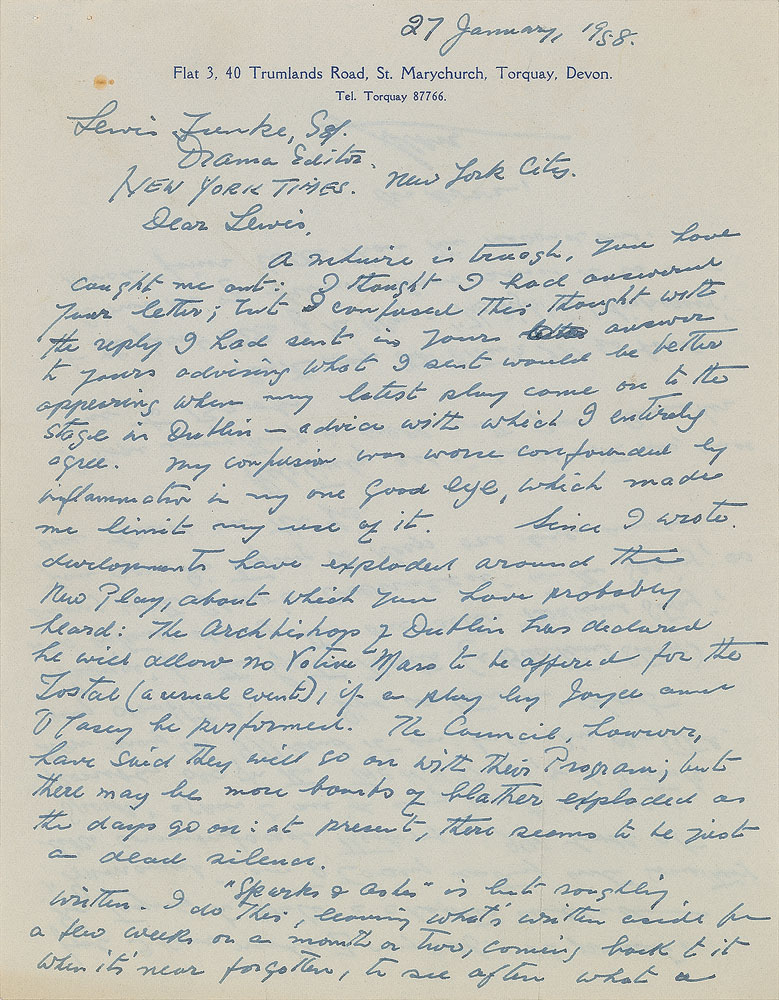 27 January, 1958.
Flat 3, 40 Trumlands Road, St. Marychurch, Torquay, Devon.
Tel. Torquay 87766.
Lewis Funke, Esq.
Drama Editor,
NEW YORK TIMES. New York City.
Dear Lewis,
A is through, you have
caught me out: I thought I had answered
your letter; but I confused this thought with
the reply I had sent in yours answer
to yours advising what I sent would be better
appearing when my latest play came on to the
stage in Dublin — advice with which I entirely
agree. My confusion was worse confounded by
inflammation in my one good eye, which made
me limit my use of it. Since I wrote,
developments have exploded around the
New Play, about which you have probably
heard: The Archbishop of Dublin has declared
he will allow no Votive Mass to be offered for the
Tostal (a usual event), if a play by Joyce and
O'Casey be performed. The Council, however,
have said they will go on with their Program; but
there may be more bombs of blather exploded as
the days go on: at present, there seems to be just
a dead silence.
"Sparks & Ashes" is but roughly
written. I do this, leaving what's written aside for
a few weeks or a month or two, coming back to it
when it's near forgotten, to see after what a